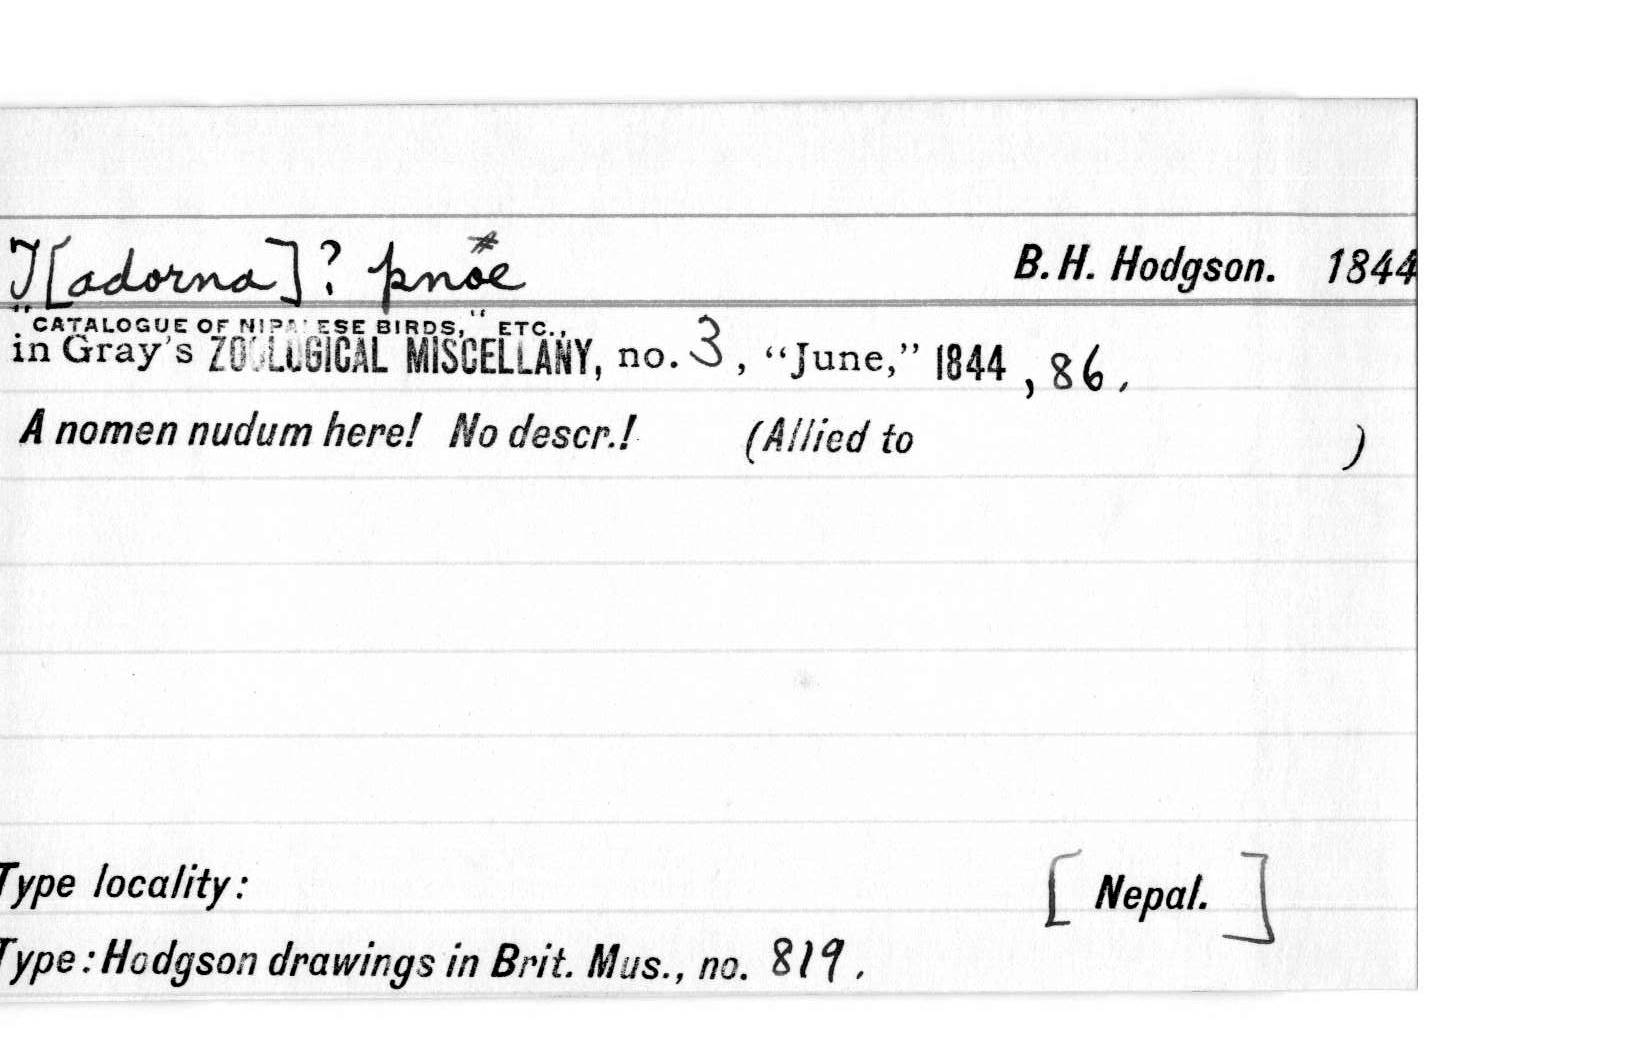 T[adorna]? pnöe # B. H. Hodgson. 1844
"CATALOGUE OF NIPALESE BIRDS," ETC.,
in Gray's ZOOLOGICAL MISCELLANY, no. 3, “June,” 1844, 86.
A nomen nudum here! No descr.! (Allied to )
Type locality: [Nepal.]
Type: Hodgson drawings in Brit. Mus., no. 819.